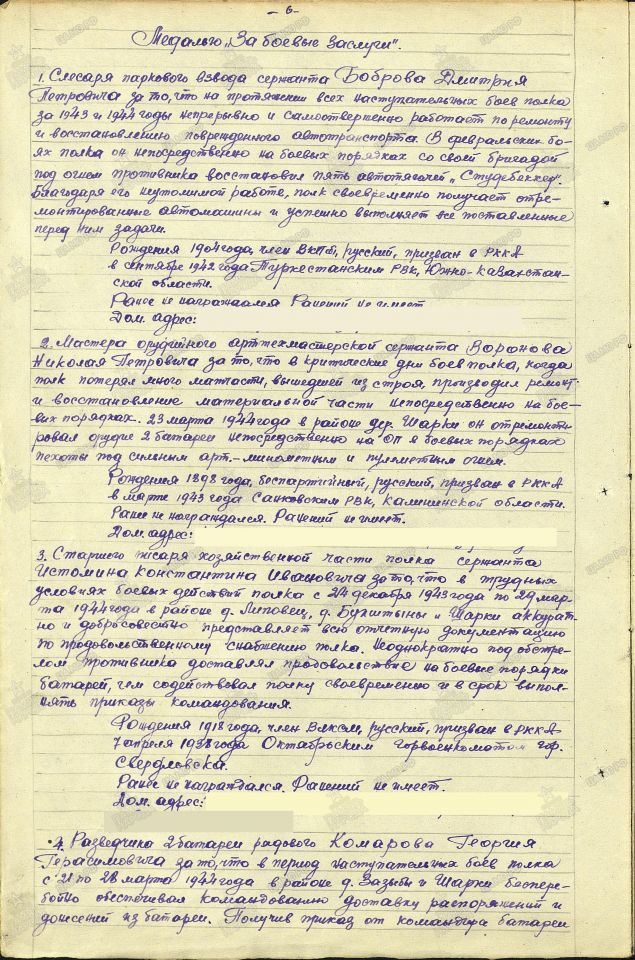 - 6 -
Медалью „За боевые заслуги".
1. Слесаря паркового взвода сержанта Боброва Дмитрия
Петровича за то, что на протяжении всех наступательных боев полка
за 1943 и 1944 годы непрерывно и самоотверженно работает по ремонту
и восстановлению поврежденного автотранспорта. В февральских бо-
ях полка он непосредственно на боевых порядках со своей бригадой
под огнем противника восстановил пять автотягачей „Студебеккер".
Благодаря его неутолимой работе, полк своевременно получает отре-
монтированные автомашины и успешно выполняет все поставленные
перед ним задачи.
Рождения 1904 года, член ВКПб, русский, призван в РККА
в сентябре 1942 года Туркестанским РВК, Южно-Казахстан-
ской области.
Ранее не награждался Ранений не имеет
Дом. адрес:
2. Мастера орудийного арттехмастерской сержанта Воронова
Николая Петровича за то, что в критические дни боев полка, когда
полк потерял много матчасти, вышедшей из строя, производил ремонт
и восстановление материальной части непосредственно на бое-
вых порядках. 23 марта 1944 года в районе дер. Шарки он отремонти-
ровал орудие 2 батареи непосредственно на ОП в боевых порядках
пехоты под сильным арт-минометным и пулеметным огнем.
Рождения 1898 года, беспартийный, русский, призван в РККА
в марте 1943 года Санковским РВК, Калининской области.
Ранее не награждался. Ранений не имеет.
Дом. адрес:
3. Старшего писаря хозяйственной части полка сержанта
Истомина Константина Ивановича за то, что в трудных
условиях боевых действий полка с 24 декабря 1943 года по 29 мар-
та 1944 года в районе д. Липовец, д. Буштыны и Шарки аккурат-
но и добросовестно представляет всю отчетную документацию
по продовольственному снабжению полка. Неоднократно под обстре-
лом противника доставлял продовольствие на боевые порядки
батарей, чем содействовал полку своевременно и в срок выпол-
нять приказы командования.
Рождения 1918 года, член ВЛКСМ, русский, призван в РККА
7 апреля 1938 года Октябрьским горвоенкоматом гор.
Свердловска.
Ранее не награждался. Ранений не имеет.
Дом. адрес:
4. Разведчика 2 батареи рядового Комарова Георгия
Герасимовича за то, что в период наступательных боев полка
с 21 по 28 марта 1944 года в районе д. Зазыбы и Шарки беспере-
бойно обеспечивал командованию доставку распоряжений и
донесений из батареи. Получив приказ от командира батареи